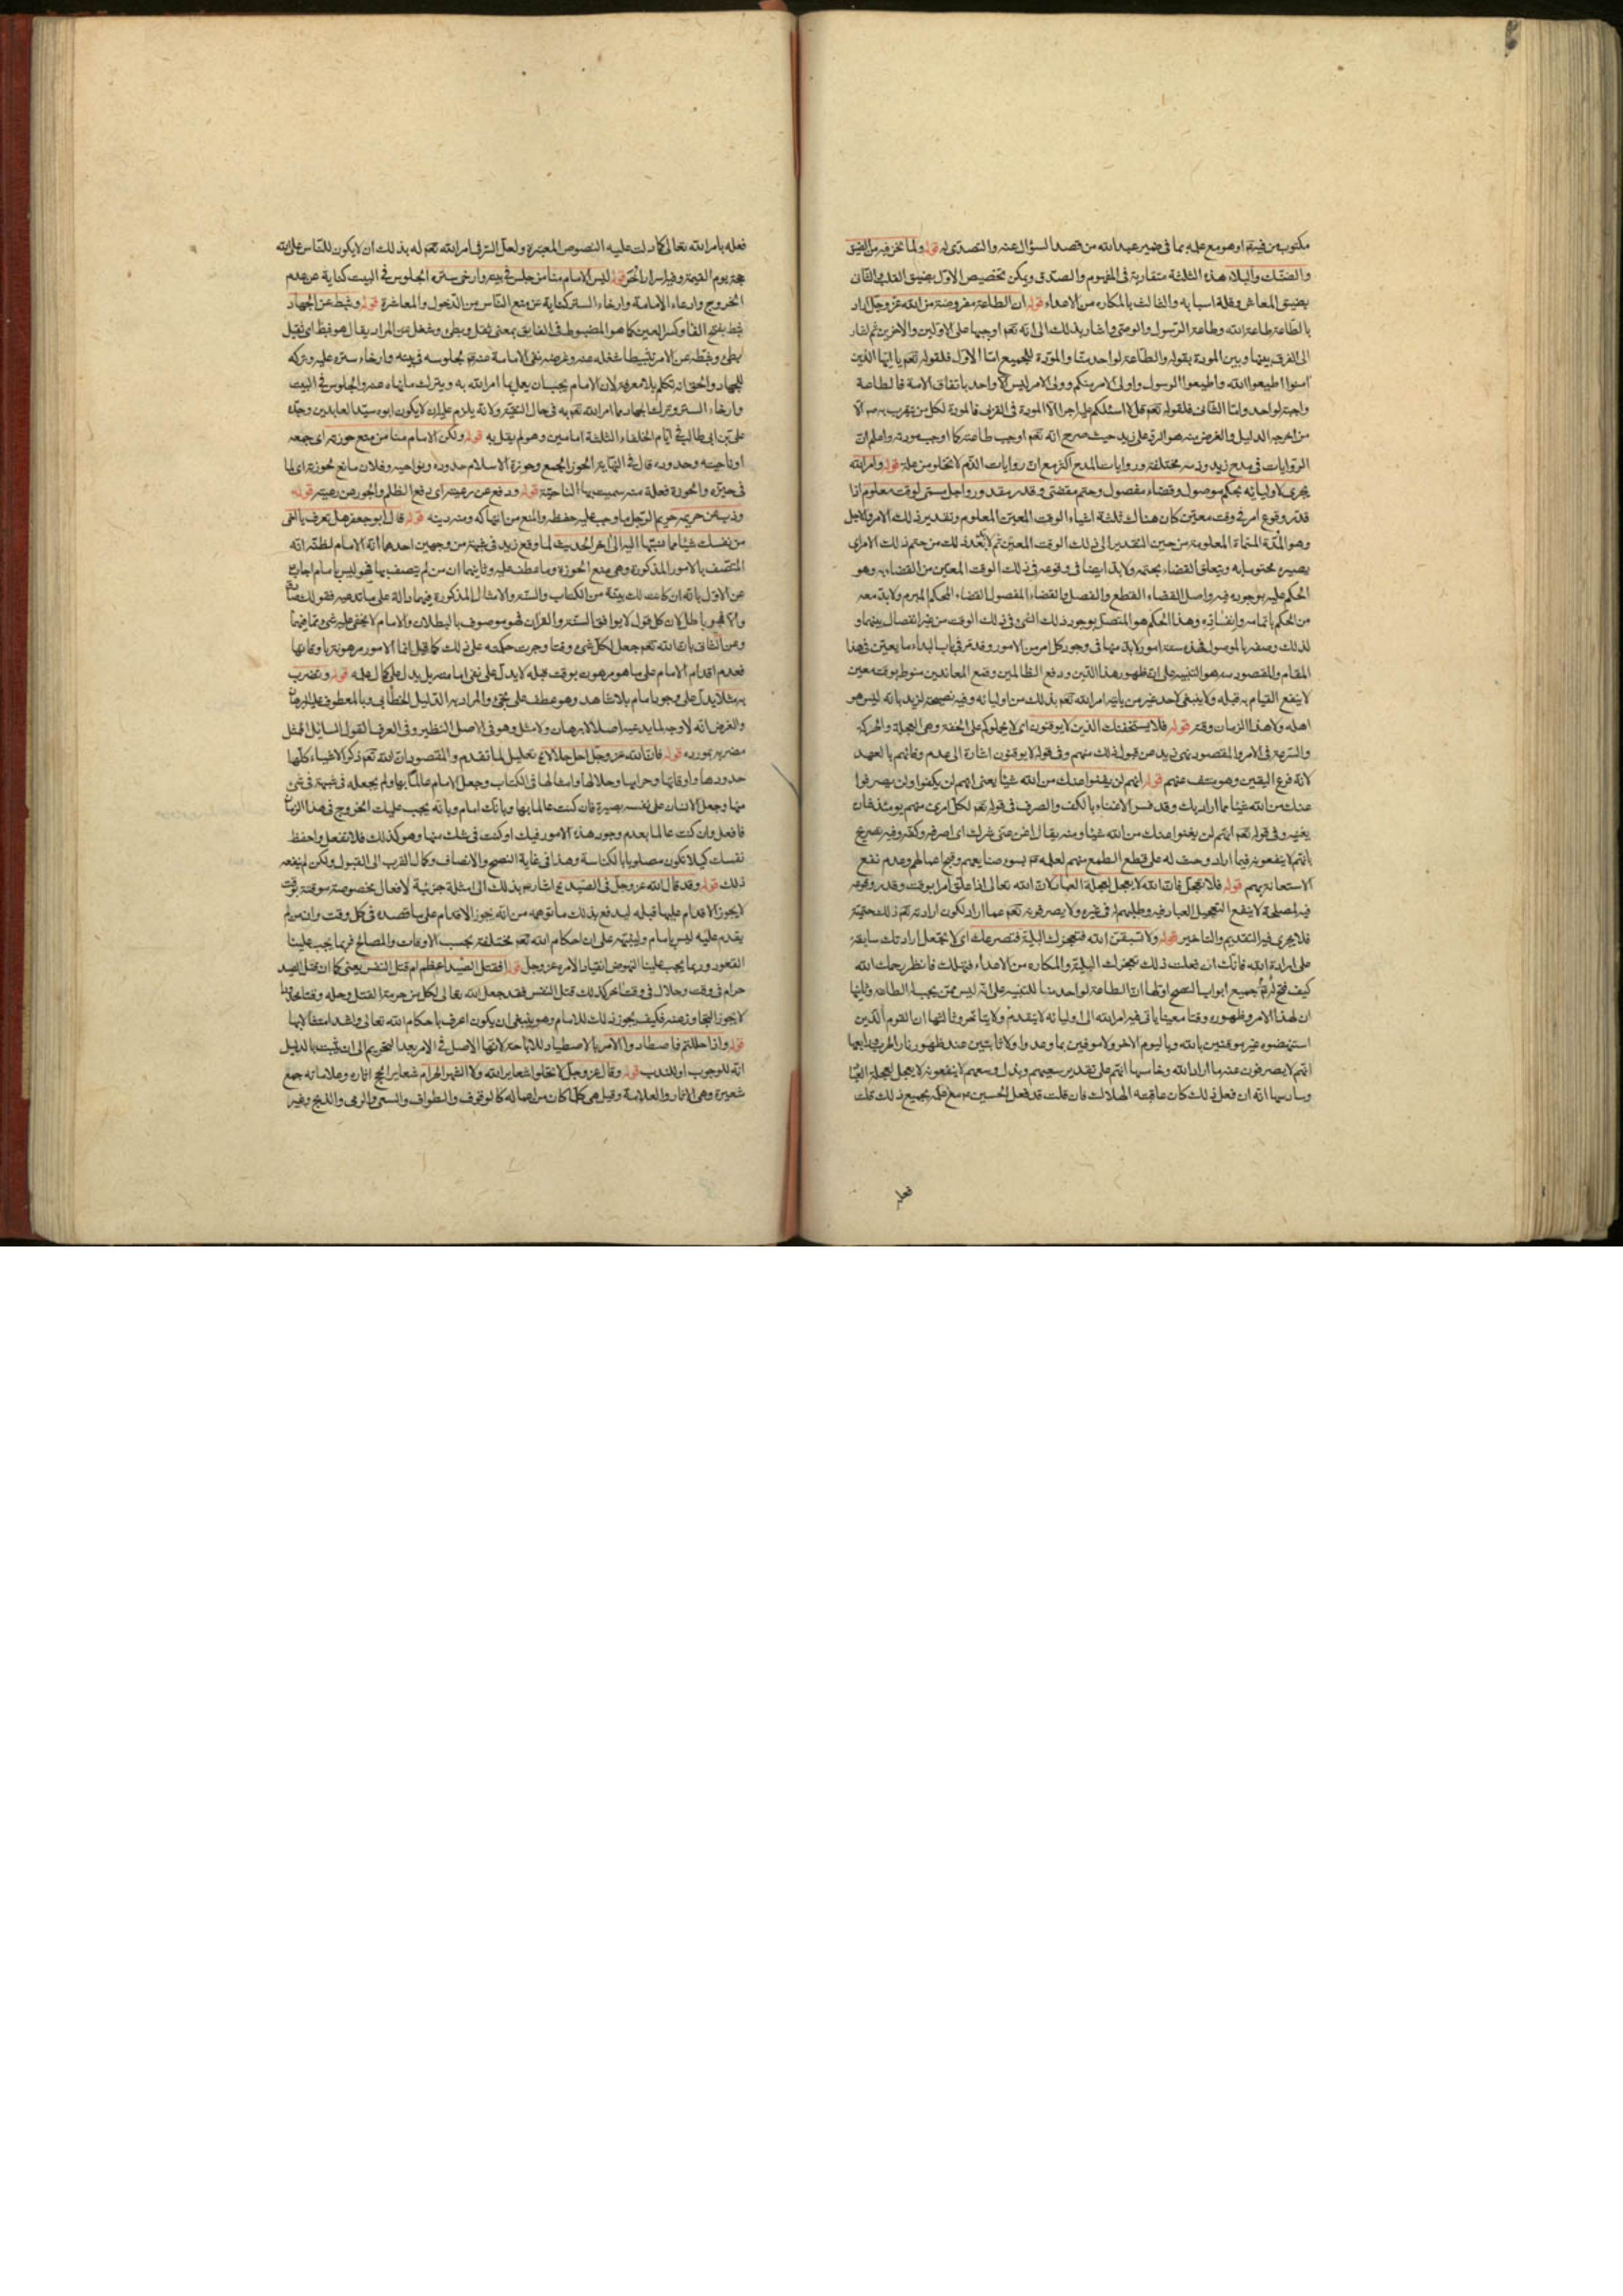 مكتوب من فيتة او هو مع علمه بما فى ضمير عبد الله من قصد السؤال عنه والتصدى له قوله ولما نحن فيه من الضيق
والضنك والبلاء هذه الثلثة متقاربة فى المفهوم والصدق ويمكن تخصيص الاول بضيق القلب والثانى
بضيق المعاش وقلة اسبابه والثالث بالمكاره من الاعداء قوله ان الطاعة مفروضة من الله عز وجل اراد
بالطاعة طاعة الله وطاعة الرسول والوصى واشار بذلك الى انه تعم اوجبها على الاولين والاخرين ثم اشار
الى الفرق بينها وبين المودة بقوله والطاعة لواحد منا والمودة للجميع اما الاول فلقوله تعم يا ايها الذين
امنوا اطيعوا الله واطيعوا الرسول واولى الامر منكم وولى الامر ليس الا واحد باتفاق الامة فالطاعة
واجبة لواحد واما الثانى فلقوله تعم قل لا اسئلكم عليه اجرا الا المودة فى القربى فالمودة لكل من يتقرب به صم الا
من اخرجه الدليل والغرض منه هو الرد على زيد حيث صرح انه تعم اوجب طاعته كما اوجب مودته واعلم ان
الروايات فى مدح زيد وذمه مختلفة وروايات المدح اكثر مع ان روايات الذم لا تخلو من علة قوله وامر الله
يجرى لاوليائه بحكم موصول وقضاء مفصول وحتم مقضى وقدر مقدور واجل مسمى لوقت معلوم اذا
قدر وقوع امر فى وقت معين كان هناك ثلثة اشياء الوقت المعين المعلوم وتقدير ذلك الامر والاجل
وهو المدة المسماة المعلومة من حين التقدير الى ذلك الوقت المعين ثم لابد بعد ذلك من حتم ذلك الامر اى
يصيره محتوما به ويتعلق القضاء بحتمه ولابد ايضا فى وقوعه فى ذلك الوقت المعين من القضاء به وهو
الحكم عليه بوجوده فيه واصل القضاء القطع والفصل والقضاء المفصول القضاء المحكم المبرم ولابد معه
من الحكم باتمامه وانفساذه وهذا الحكم هو المتصل بوجود ذلك الشئ فى ذلك الوقت من غير انفصال بينهما و
لذلك وصفه بالموصول فهذه ستة امور لابد منها فى وجود كل امر من الامور وقد مر فى باب البداء ما يعين فى هذا
المقام والمقصود منه هو التنبيه على ان ظهور هذا الدين ودفع الظالمين وقمع المعاندين منوط بوقت معين
لا ينفع القيام به قبله ولا ينبغى لاحد غير من ياتيه امر الله تعم بذلك من اوليائه وفيه نصيحة لزيد بانه ليس هو
اهله ولا هذا الزمان وقته قوله فلا يستخفنك الذين لا يوقنون اى لا يحملوكم على الخفة وهى العجلة والحركة
والسرعة فى الامر والمقصود نهى زيد عن قبول ذلك منهم وفى قوله لا يوقنون اشارة الى عدم وفائهم بالعهد
لانه فرع اليقين وهو منتف عنهم قوله انهم لن يغنوا عنك من الله شيئا يعنى انهم لن يكفوا ولن يصرفوا
عنك من الله شيئا مما اراد بك وقد فسر الاغناء بالكف والصرف فى قوله تعم لكل امرئ منهم يومئذ شان
يغنيه وفى قوله تعم انهم لن يغنوا عنك من الله شيئا ومنه يقال اغن عنى شرك اى اصرفه وكفه وفيه تصريح
بانهم لا ينفعونه فيما اراد وحث له على قطع الطمع منهم لعلمه عم بسوء صنايعهم وقبح اعمالهم وعدم نفع
الاستعانة بهم قوله فلا تعجل فان الله لا يعجل لعجلة العباد لان الله تعالى اذا علق امرا بوقت وقدر وقوعه
فيه لمصلحة لا ينفع التعجيل العباد فيه وطلبهم له فى غيره ولا يصرفونه تعم عما اراد لكون ارادته تعم ذلك حتمية
فلا يجرى فيه التقديم والتاخير قوله ولا تسبقن الله فتعجزك البلية فتصرعك اى لا تجعل ارادتك سابقة
على ارادة الله فانك ان فعلت ذلك تعجزك البلية والمكاره من الاعداء فتهلك فانظر رحمك الله
كيف فتح له عم جميع ابواب النصح اولها ان الطاعة لواحد منا للتنبيه على انه ليس ممن يجب له الطاعة وثانيها
ان لهذا الامر وظهوره وقتا معينا ياتى فيه امر الله الى اوليائه لا يتقدم ولا يتاخر وثالثها ان القوم الذين
استنهضوه غير موقنين بالله وباليوم الاخر ولا موفين بما وعدوا ولا ثابتين عند ظهور نار الحرب ورابعها
انهم لا يصرفون عنه ما اراد الله وخامسها انهم على تقدير سعيهم وبذل وسعهم لا ينفعونه لا يعجل لعجلة العباد
وسادسها انه ان فعل ذلك كان عاقبته الهلاك فان قلت قد فعل الحسين عم مع علمه بجميع ذلك قلت
فعله
فعله بامر الله تعالى كما دلت عليه النصوص المعتبرة ولعل السر فى امر الله تعم له بذلك ان لا يكون للناس على الله
حجة يوم القيمة وفيه اسرار اخر قوله ليس الامام منا من جلس فى بيته وارخى ستره الجلوس فى البيت كناية عن عدم
الخروج وادعاء الامامة وارخاء الستر كناية عن منع الناس من الدخول والمعاشرة قوله وثبط عن الجهاد
ثبط بفتح الفا وكسر العين كما هو المضبوط فى الفايق بمعنى يثقل ويبطئ وشغل عن المراد يقال هو ثبط اى ثقيل
بطئ وثبطه عن الامر تثبيطا شغله عنه وغرضه نفى الامامة عنه عم لجلوسه فى بيته وارخاء ستره عليه وتركه
للجهاد والحق انه تكلم بلا معرفة لان الامام يجب ان يعمل بما امر الله به ويترك ما نهاه عنه والجلوس فى البيت
وارخاء الستر وترك الجهاد مما امر الله تعم به فى حال التقية ولانه يلزم عليه ان لا يكون ابوه سيد العابدين وجده
على بن ابى طالب فى ايام الخلفاء الثلثة امامين وهو لم يقل به قوله ولكن الامام منا من منع حوزته اى جمعه
او ناحيته وحدوده قال فى النهاية الحوز الجمع وحوزة الاسلام حدوده ونواحيه وفلان مانع لحوزته اى لما
فى حيزه والحوزة فعلة منه سميت بها الناحية قوله ودفع عن رعيته اى دفع الظلم والجور عن رعيته قوله
وذب عن حريمه حريم الرجل ما وجب عليه حفظه والمنع من انتهاكه ومنه دينه قوله قال ابو جعفر هل تعرف يا اخى
من نفسك شيئا مما نسبتها اليه الى اخر الحديث لما وقع زيد فى شبهة من وجهين احدهما انه الامام لظنه انه
المتصف بالامور المذكورة وهى منع الحوزة وما عطف عليه وثانيهما ان من لم يتصف بها فهو ليس بامام اجاب عم
عن الاول بانه ان كانت لك بينة من الكتاب والسنة والامثال المذكورة فيهما دالة على ما تدعيه فقولك صادق
والا فهو باطل لان كل قول لا يوافق السنة والقران فهو موصوف بالبطلان والامام لا يخفى عليه شئ مما فيهما
وعن الثانى بان الله تعم جعل لكل شئ وقتا وجرت حكمته على ذلك كما قيل انما الامور مرهونة باوقاتها
فعدم اقدام الامام على ما هو مرهون بوقت قبله لا يدل على نفى امامته بل يدل على كمال علمه قوله وتضرب
به مثلا يدل على وجود امام بلا شاهد وهو عطف على تجئ والمراد به الدليل الخطابى وبالمعطوف عليه البرهان
والغرض انه لا وجه لما يدعيه اصلا لا برهان ولا مثل وهو فى الاصل النظير وفى العرف القول السائر الممثل
مضربه بمورده قوله فان الله عز وجل احل حلالا عم تعليل لما تقدم والمقصود ان الله تعم ذكر الاشياء كلها
حدودها واوقاتها وحرامها وحلالها وامثالها فى الكتاب وجعل الامام عالما بها ولم يجعله فى شبهة فى شئ
منها وجعل الانسان على نفسه بصيرة فان كنت عالما بها وبانك امام وبانه يجب عليك الخروج فى هذا الزمان
فافعل وان كنت عالما بعدم وجود هذه الامور فيك او كنت فى شك منها وهو كذلك فلا تفعل واحفظ
نفسك كيلا تكون مصلوبا بالكناسة وهذا فى غاية النصح والانصاف وكمال القرب الى القبول ولكن لم ينفعه
ذلك قوله وقد قال الله عز وجل فى الصيد عم اشار به بذلك الى امثلة جزئية لافعال مخصوصة موقتة بوقت
لا يجوز الاقدام عليها قبله ليدفع بذلك ما توهمه من انه يجوز الاقدام على ما قصده فى كل وقت وان من لم
يقدم عليه ليس بامام ولينبه على ان احكام الله تعم مختلفة بحسب الاوقات والمصالح فربما يجب علينا
القعود وربما يجب علينا النهوض انقيادا لامره عز وجل قوله افقتل الصيد اعظم ام قتل النفس يعنى كما ان قتل الصيد
حرام فى وقت وحلال فى وقت اخر كذلك قتل النفس فقد جعل الله تعالى لكل من حرمة القتل وحله وقتا محدودا
لا يجوز التجاوز عنه فكيف يجوز ذلك للامام وهو ينبغى ان يكون اعرف باحكام الله تعالى واشد امتثالا بها
قوله واذا حللتم فاصطادوا الامر بالاصطياد للاباحة لانها الاصل فى الامر بعد التحريم الى ان يثبت بالدليل
انه للوجوب او للندب قوله وقال عز وجل لا تحلوا شعاير الله ولا الشهر الحرام شعاير الحج اثاره وعلاماته جمع
شعيرة وهى الاثار والعلامة وقيل هى كلما كان من اعماله كالوقوف والطواف والسعى والرمى والذبح وغير